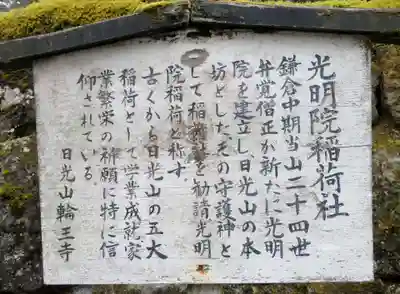 光明院稲荷社
鎌倉中期当山二十四世
弁覚僧正が新たに光明
院を建立し日光山の本
坊とした その守護神と
して稲荷社を勧請光明
院稲荷と称す
古くから日光山の五大
稲荷として学業成就家
業繁栄の祈願に特に信
仰されている。
日光山輪王寺